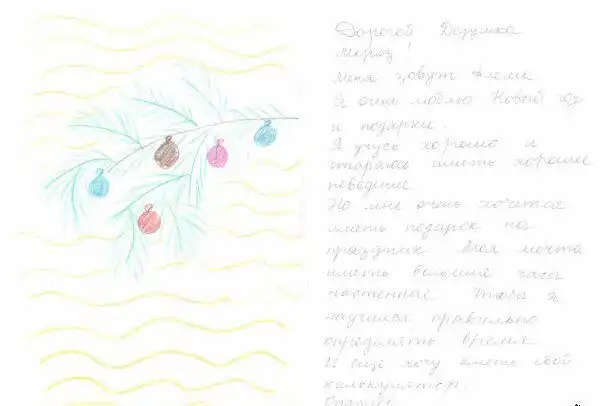 Дорогой Дедушка
Мороз!
Меня зовут
Я очень люблю Новый год
и подарки.
Я учусь хорошо и
стараюсь иметь хорошее
поведение
Но мне очень хочется
подарок на
праздник Моя мечта
иметь большие часы
настенные Чтобы я
научился правильно
определять время
И ещё хочу иметь свой
калькулятор.